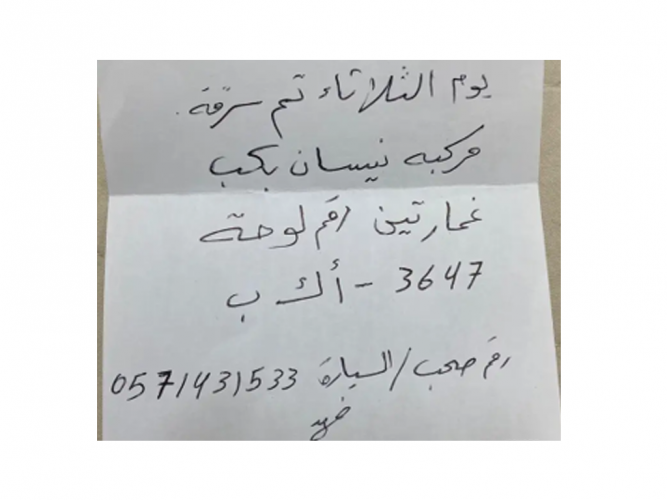 يوم الثلاثاء تم سرقة.
مركبه نيسان بكب
غمارتين رقم لوحة
3647 - أ ك ب
رقم صحب / السيارة 0571431533